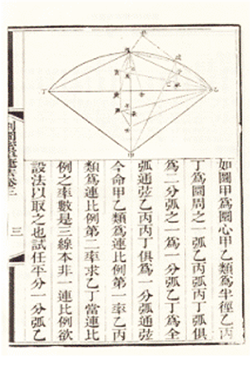 丁
乙
甲
如圖甲爲圜心甲乙類爲半徑乙丙
丁爲圜周之一弧乙丙弧丙丁弧俱
爲二分弧之一爲一分弧乙丁爲全
弧通弦乙丙丙丁俱爲一分弧通弦
今命甲乙類爲連比例第一率乙丙
類爲連比例第二率求乙丁當連比
例之率數是三線本非一連比例欲
設法以取之也試任平分一分弧乙
割圜密率捷法卷三